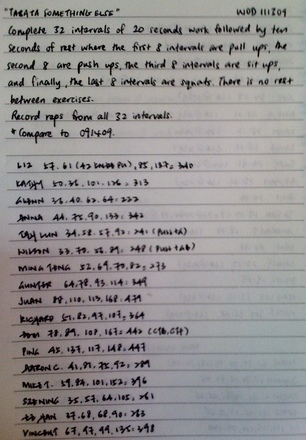 "TABATA SOMETHING ELSE" WOD 111309
Complete 32 intervals of 20 seconds work followed by ten
seconds of rest where the first 8 intervals are pull ups, the
second 8 are push ups, the third 8 intervals are sit ups,
and finally, the last 8 intervals are squats. There is no rest
between exercises.
Record reps from all 32 intervals.
* Compare to 091409.
LIZ 57. 61 (42 PU), 85, 137 = 340
KATHY 50. 36. 101. 126 = 313
GLENN 36. 40. 62. 64 = 222
ANNA 44. 75. 90. 133 = 342
LUN 34. 58. 57. 92 = 241
WILSON 33. 70. 56. 89 = 248
MING TONG 52. 69. 70. 82 = 273
GUNTER 64. 78. 93. 114 = 349
JUAN 88. 110. 113. 168 = 479
RICHARD 51. 82. 97. 137 = 364
78, 89. 108, 167 = 442
PING 45. 137. 117. 148 = 447
AARON C. 41, 81, 75, 92 = 289
MIKE T. 59. 84. 101. 152 = 396
35, 57, 64, 105 = 261
27, 68, 68, 90 = 253
VINCENT 67, 97, 99, 135 = 398